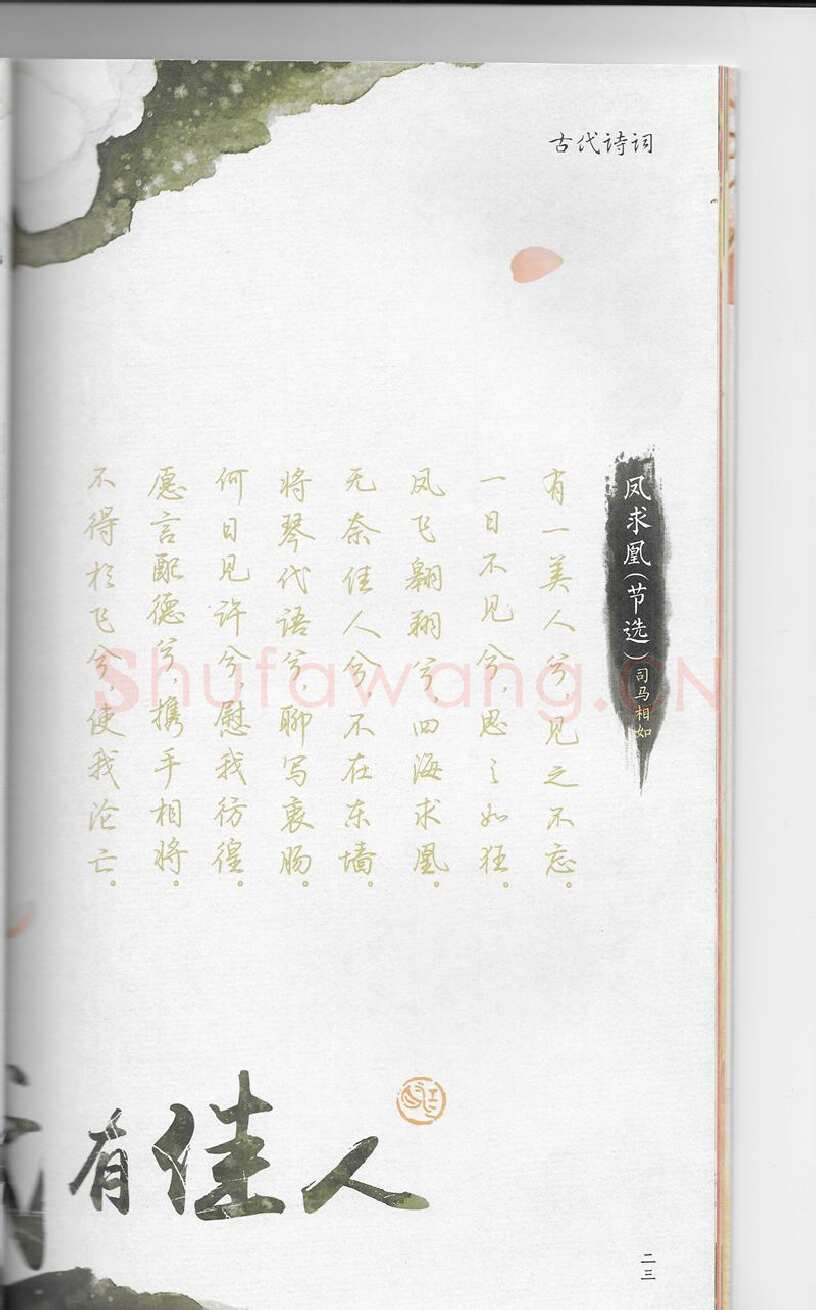 古代诗词
凤求凰(节选)司马相如
有一美人兮,见之不忘。
一日不见兮,思之如狂。
凤飞翱翔兮,四海求凰。
无奈佳人兮,不在东墙。
将琴代语兮,聊写衷肠。
何日见许兮,慰我彷徨。
愿言配德兮,携手相将。
不得於飞兮,使我沦亡。
Shufawang.CN
有佳人
二三